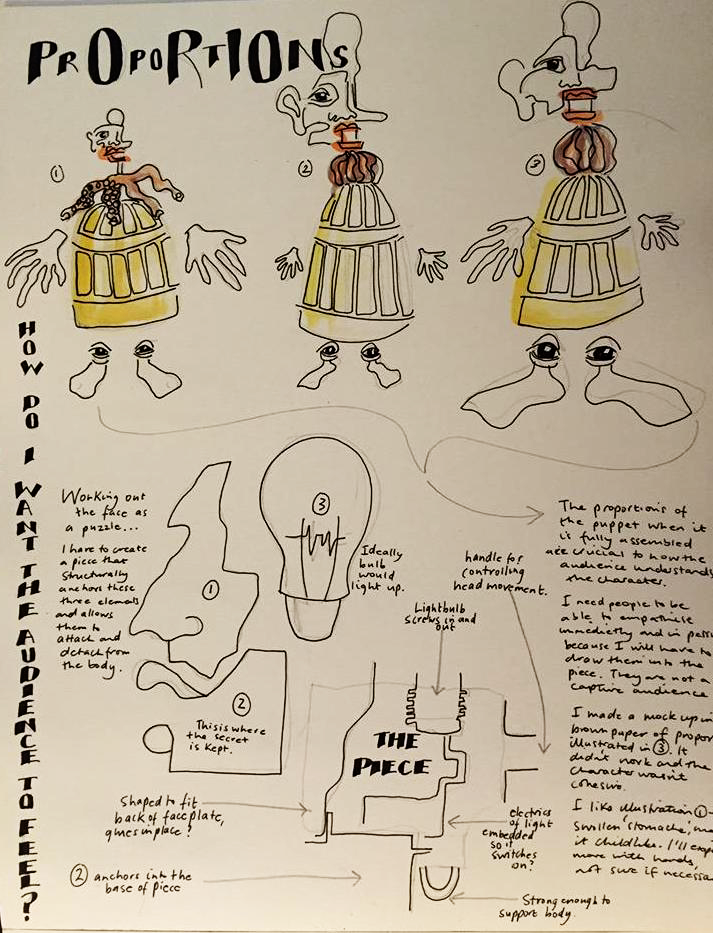 PROPORTIONS
①
②
③
HOW DO I WANT THE AUDIENCE TO FEEL?
Working out
the face as
a puzzle...
I have to create
a piece that
structurally
anchors these
three elements
and allows
them to
attach and
detach from
the body.
①
③
②
This is where
the secret
is kept.
Ideally
bulb
would
light up.
handle for
controlling
head movement.
Lightbulb
screws in and
out
THE
PIECE
Shaped to fit
back of faceplate,
glues in place?
② anchors into the
base of piece
electrics
of light
embedded
so it
switches
on?
Strong enough to
support body.
The proportions of
the puppet when it
is fully assembled
are crucial to how the
audience understands
the character.
I need people to be
able to empathise
immedietly and in
because I will have to
draw them into the
piece. They are not a
captive audience
I made a mock up in
brown paper of
illustrated in ③. It
didn't work and the
character wasn't
cohesive.
I like illustration ①-
swollen stomache,
it childlike. I'll
more with hands,
not sure if